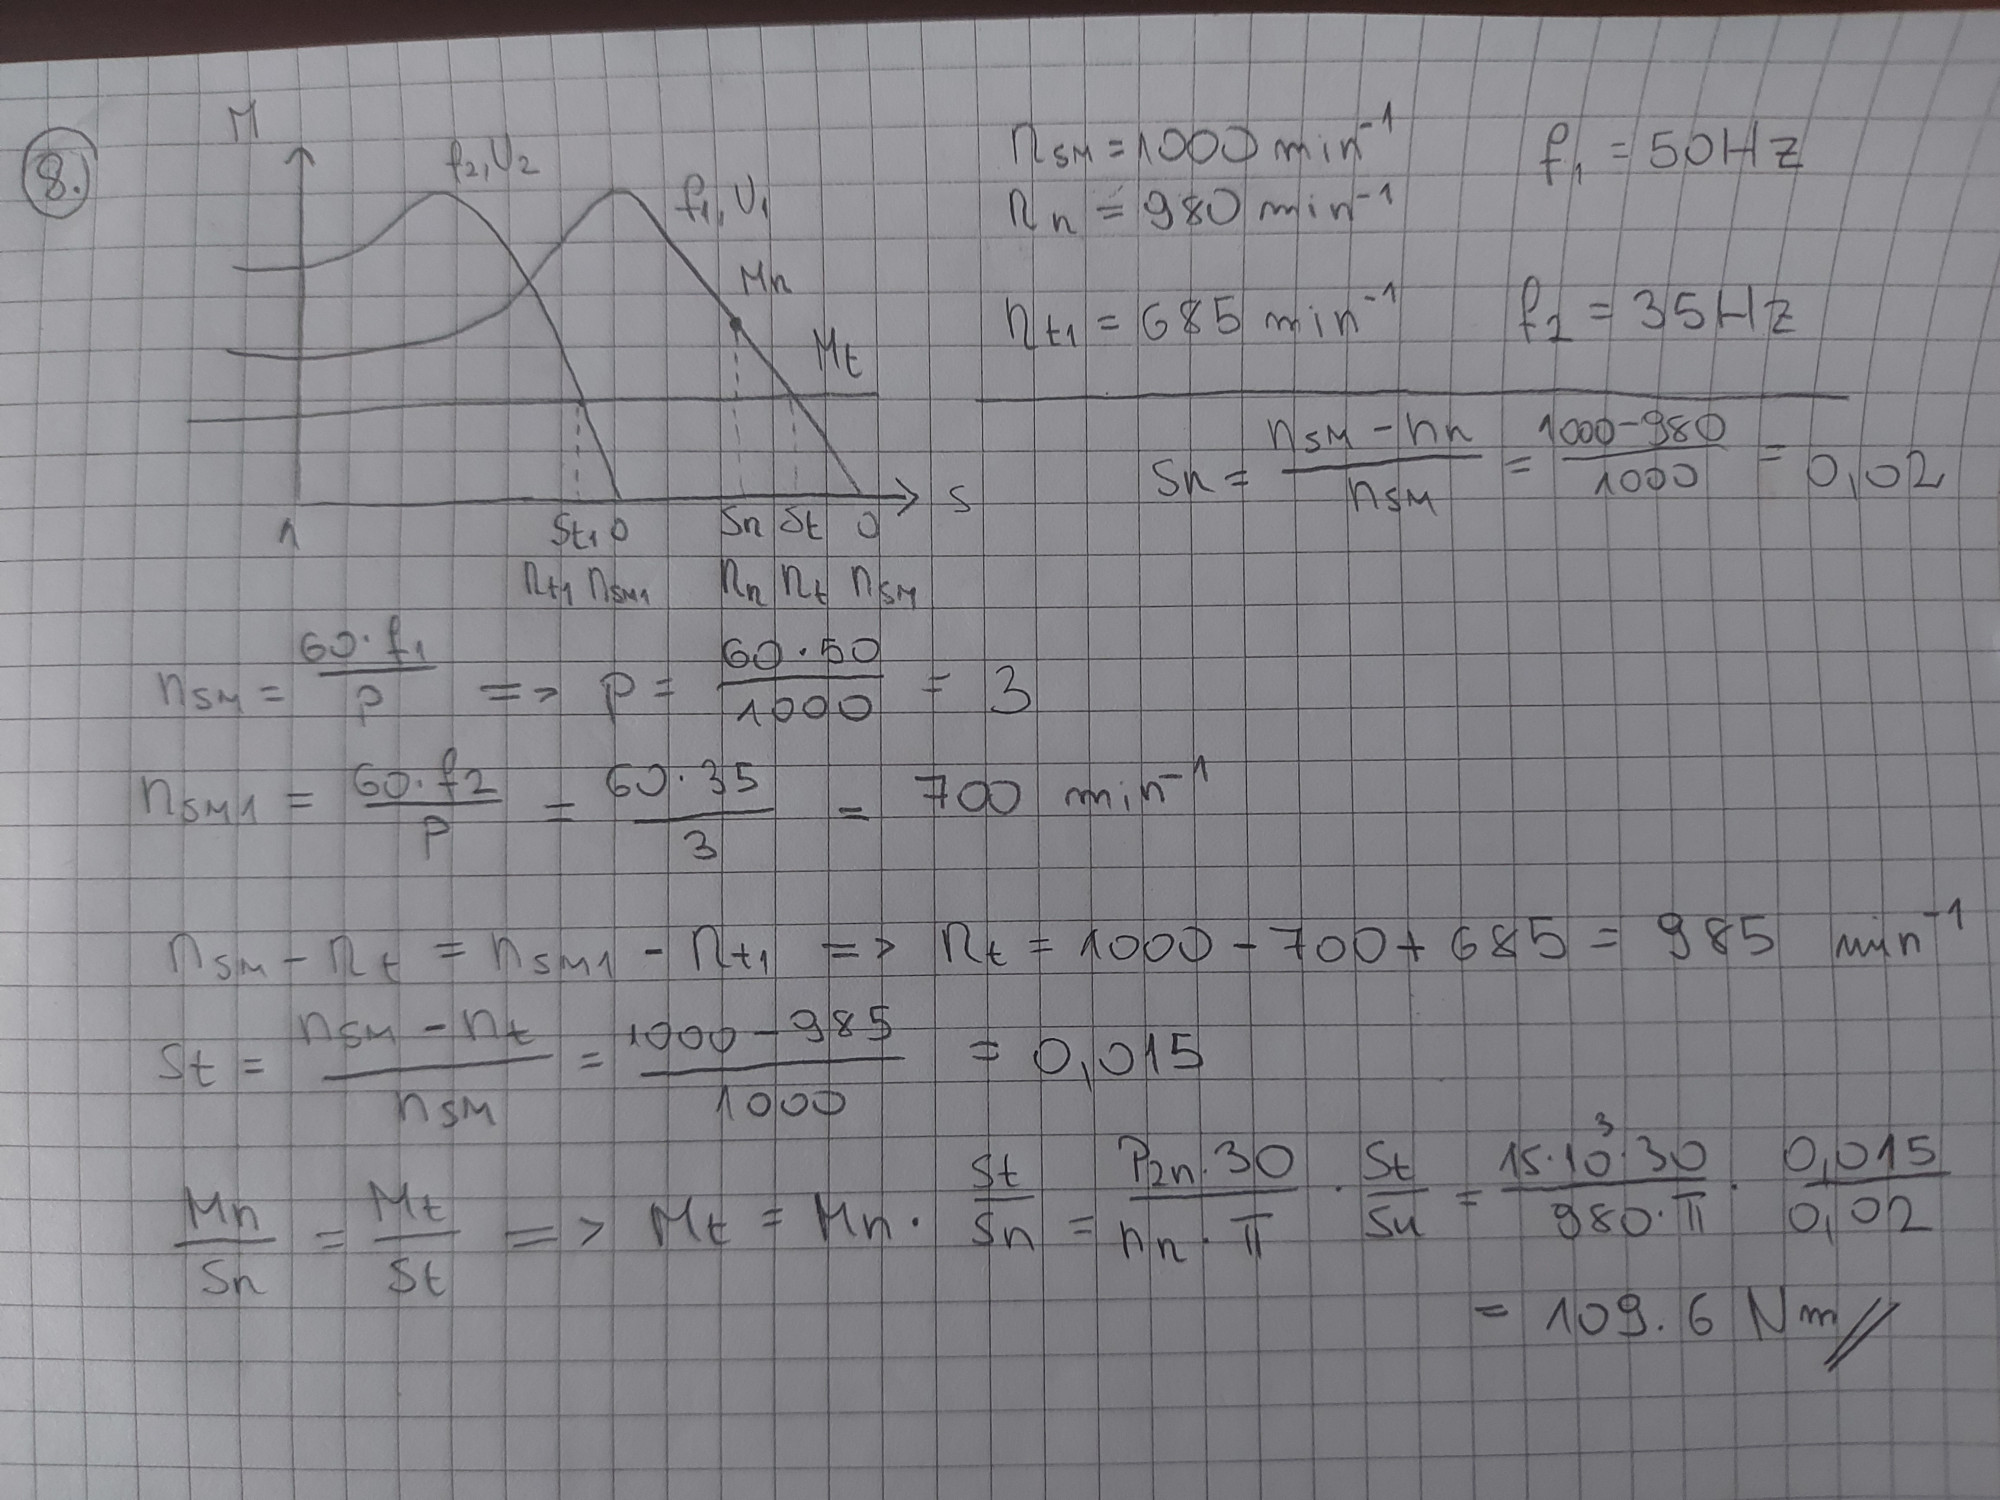 8.
M
f₂, U₂
f₁, U₁
Mn
Mt
S
1 St₁ 0 Sn St 0
nt₁ nSM₁ nn nt nSM
nSM = 1000 min⁻¹ f₁ = 50Hz
nn = 980 min⁻¹
nt₁ = 685 min⁻¹ f₂ = 35Hz
Sn = (nSM - nn)/nSM = (1000-980)/1000 = 0,02
nSM = (60·f₁)/p => p = (60·50)/1000 = 3
nSM1 = (60·f₂)/p = (60·35)/3 = 700 min⁻¹
nSM - nt = nSM1 - nt1 => nt = 1000 - 700 + 685 = 985 min⁻¹
St = (nSM - nt)/nSM = (1000 - 985)/1000 = 0,015
Mn/Sn = Mt/St => Mt = Mn · St/Sn = (P₂n·30)/(nn·π) · St/Sn = (15·10³·30)/(980·π) · 0,015/0,02
= 109.6 Nm